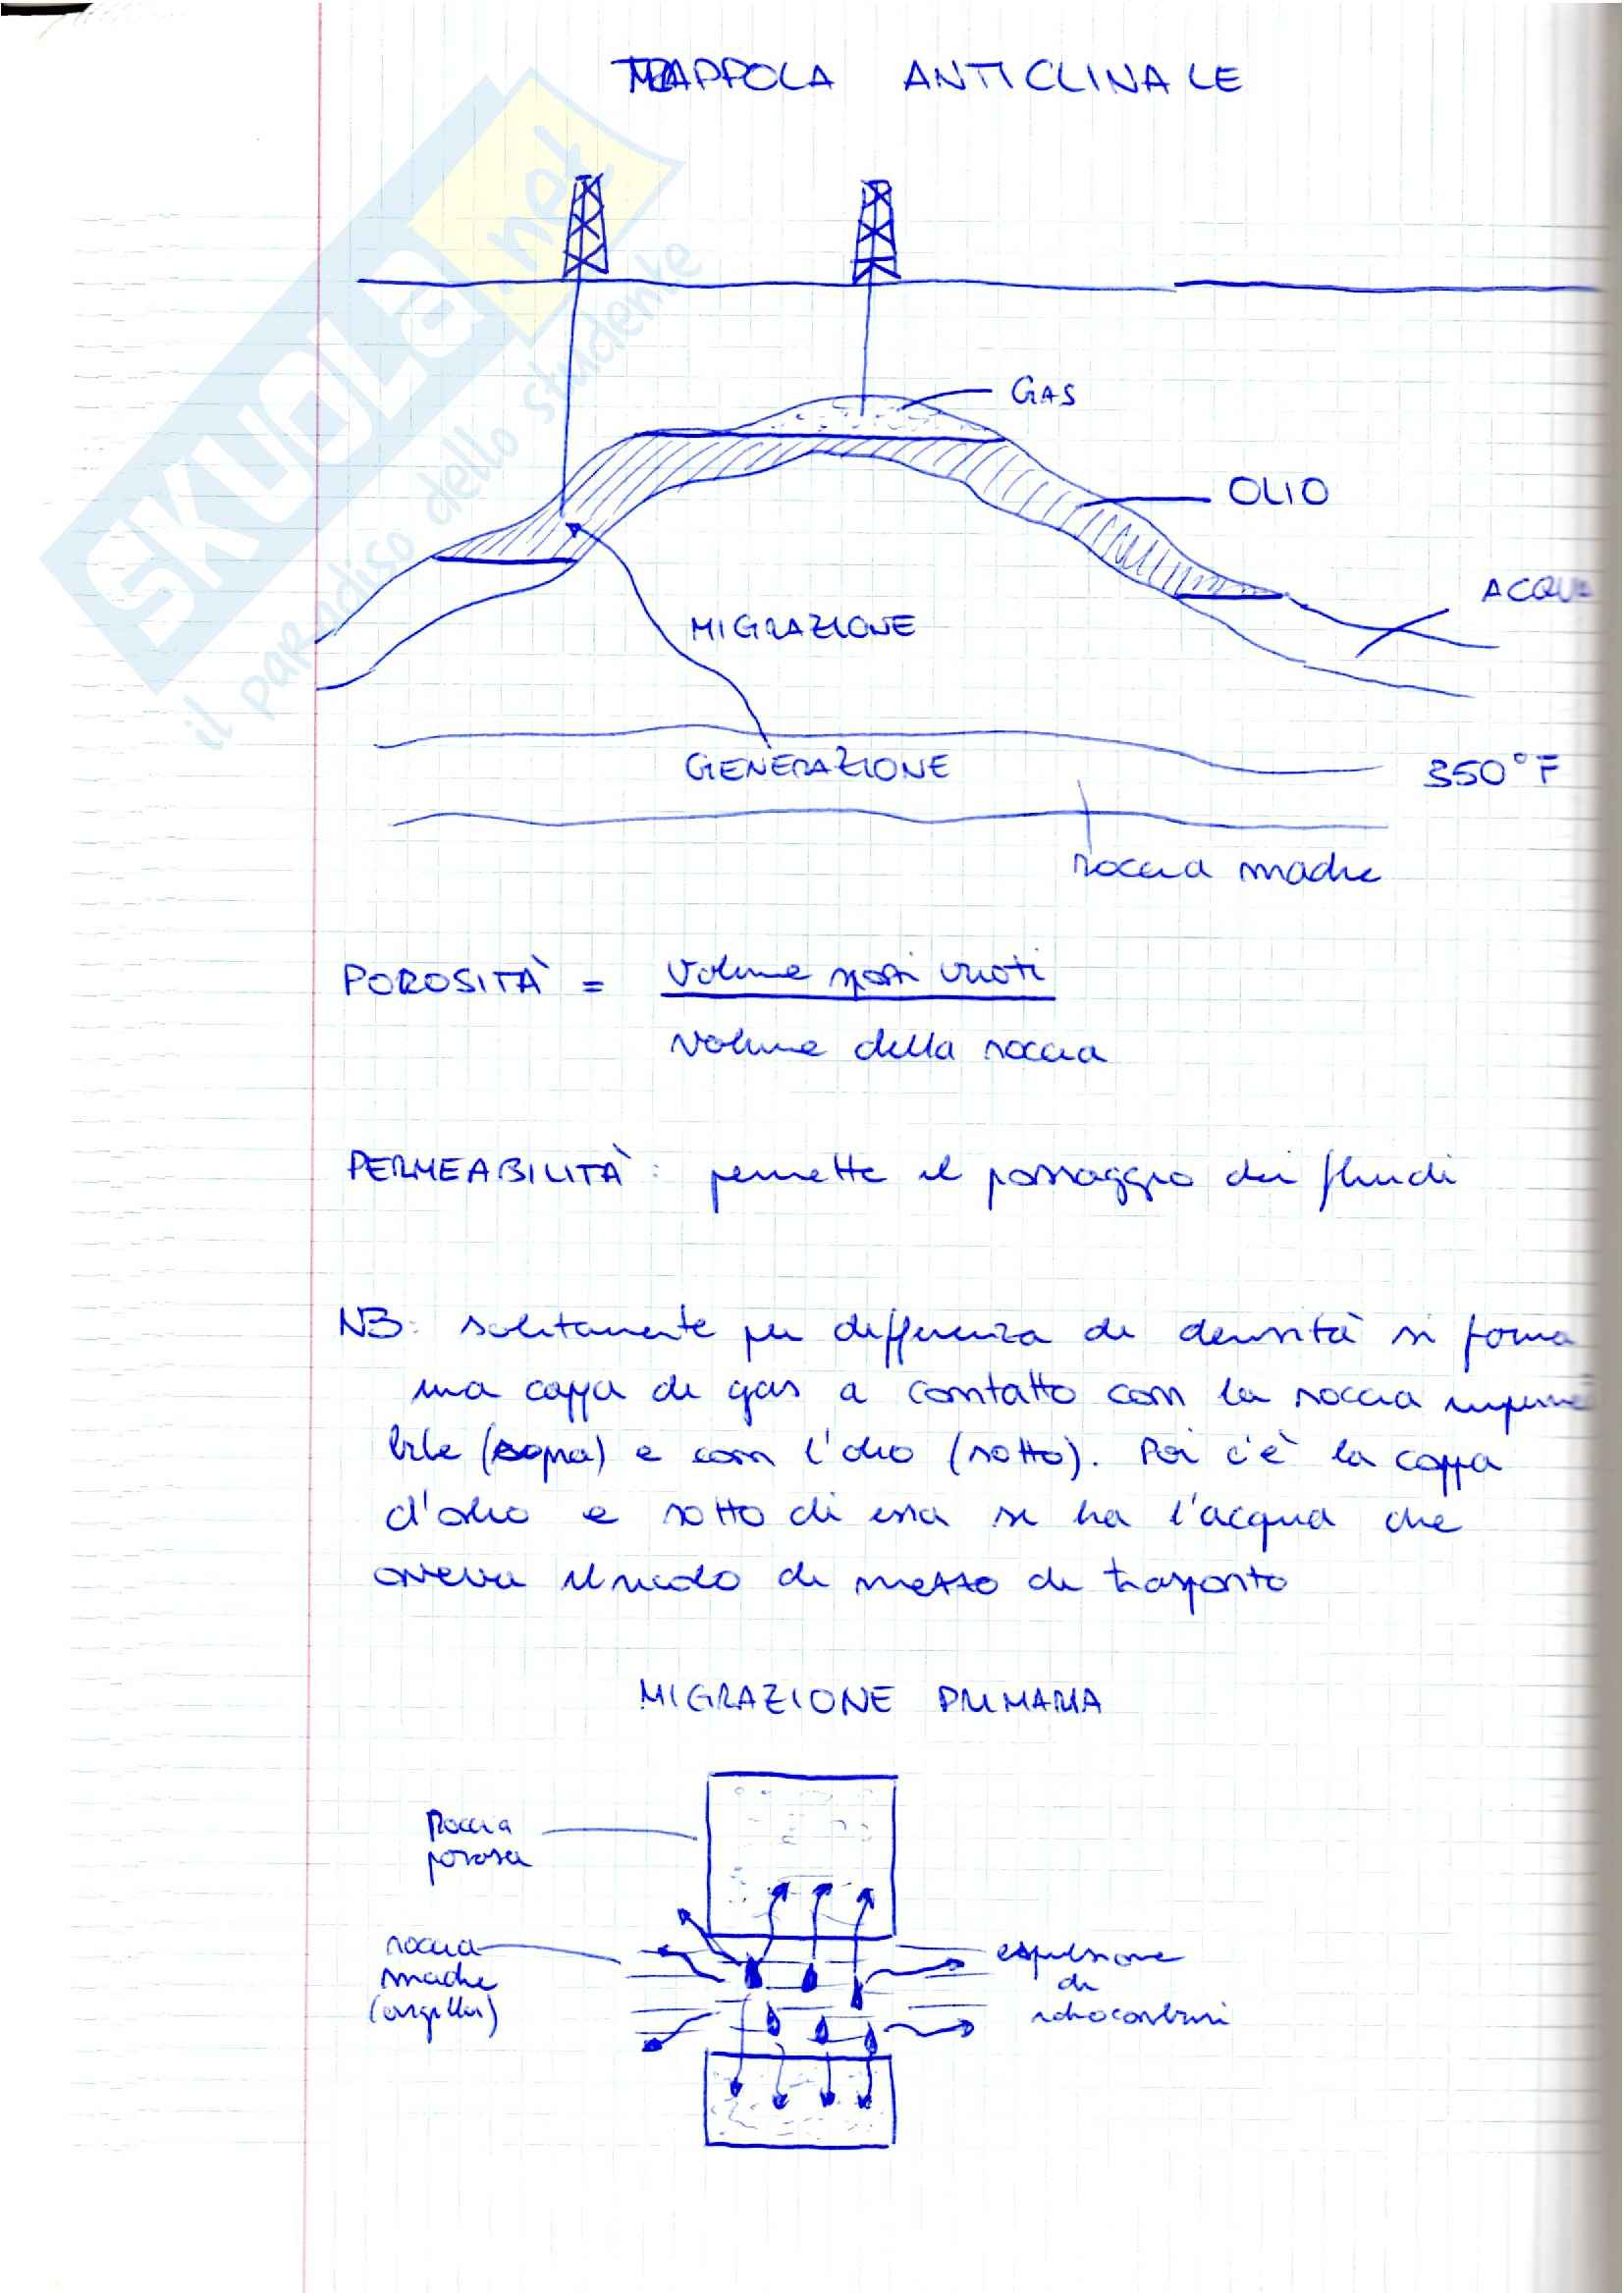 TRAPPOLA ANTICLINALE
GAS
OLIO
ACQU
MIGRAZIONE
GENERAZIONE
350°F
roccia madre
POROSITÀ = volume spazi vuoti
volume della roccia
PERMEABILITÀ: permette il passaggio dei fluidi
NB: solitamente per differenza di densità si forma
una cappa di gas a contatto con la roccia imperme
bile (sopra) e con l'olio (sotto). Poi c'è la cappa
d'olio e sotto di essa si ha l'acqua che
aveva il ruolo di mezzo di trasporto
MIGRAZIONE PRIMARIA
Roccia
porosa
roccia
madre
(argilla)
espulsione
di
idrocarburi
SKUOLA.net
il paradiso dello studente